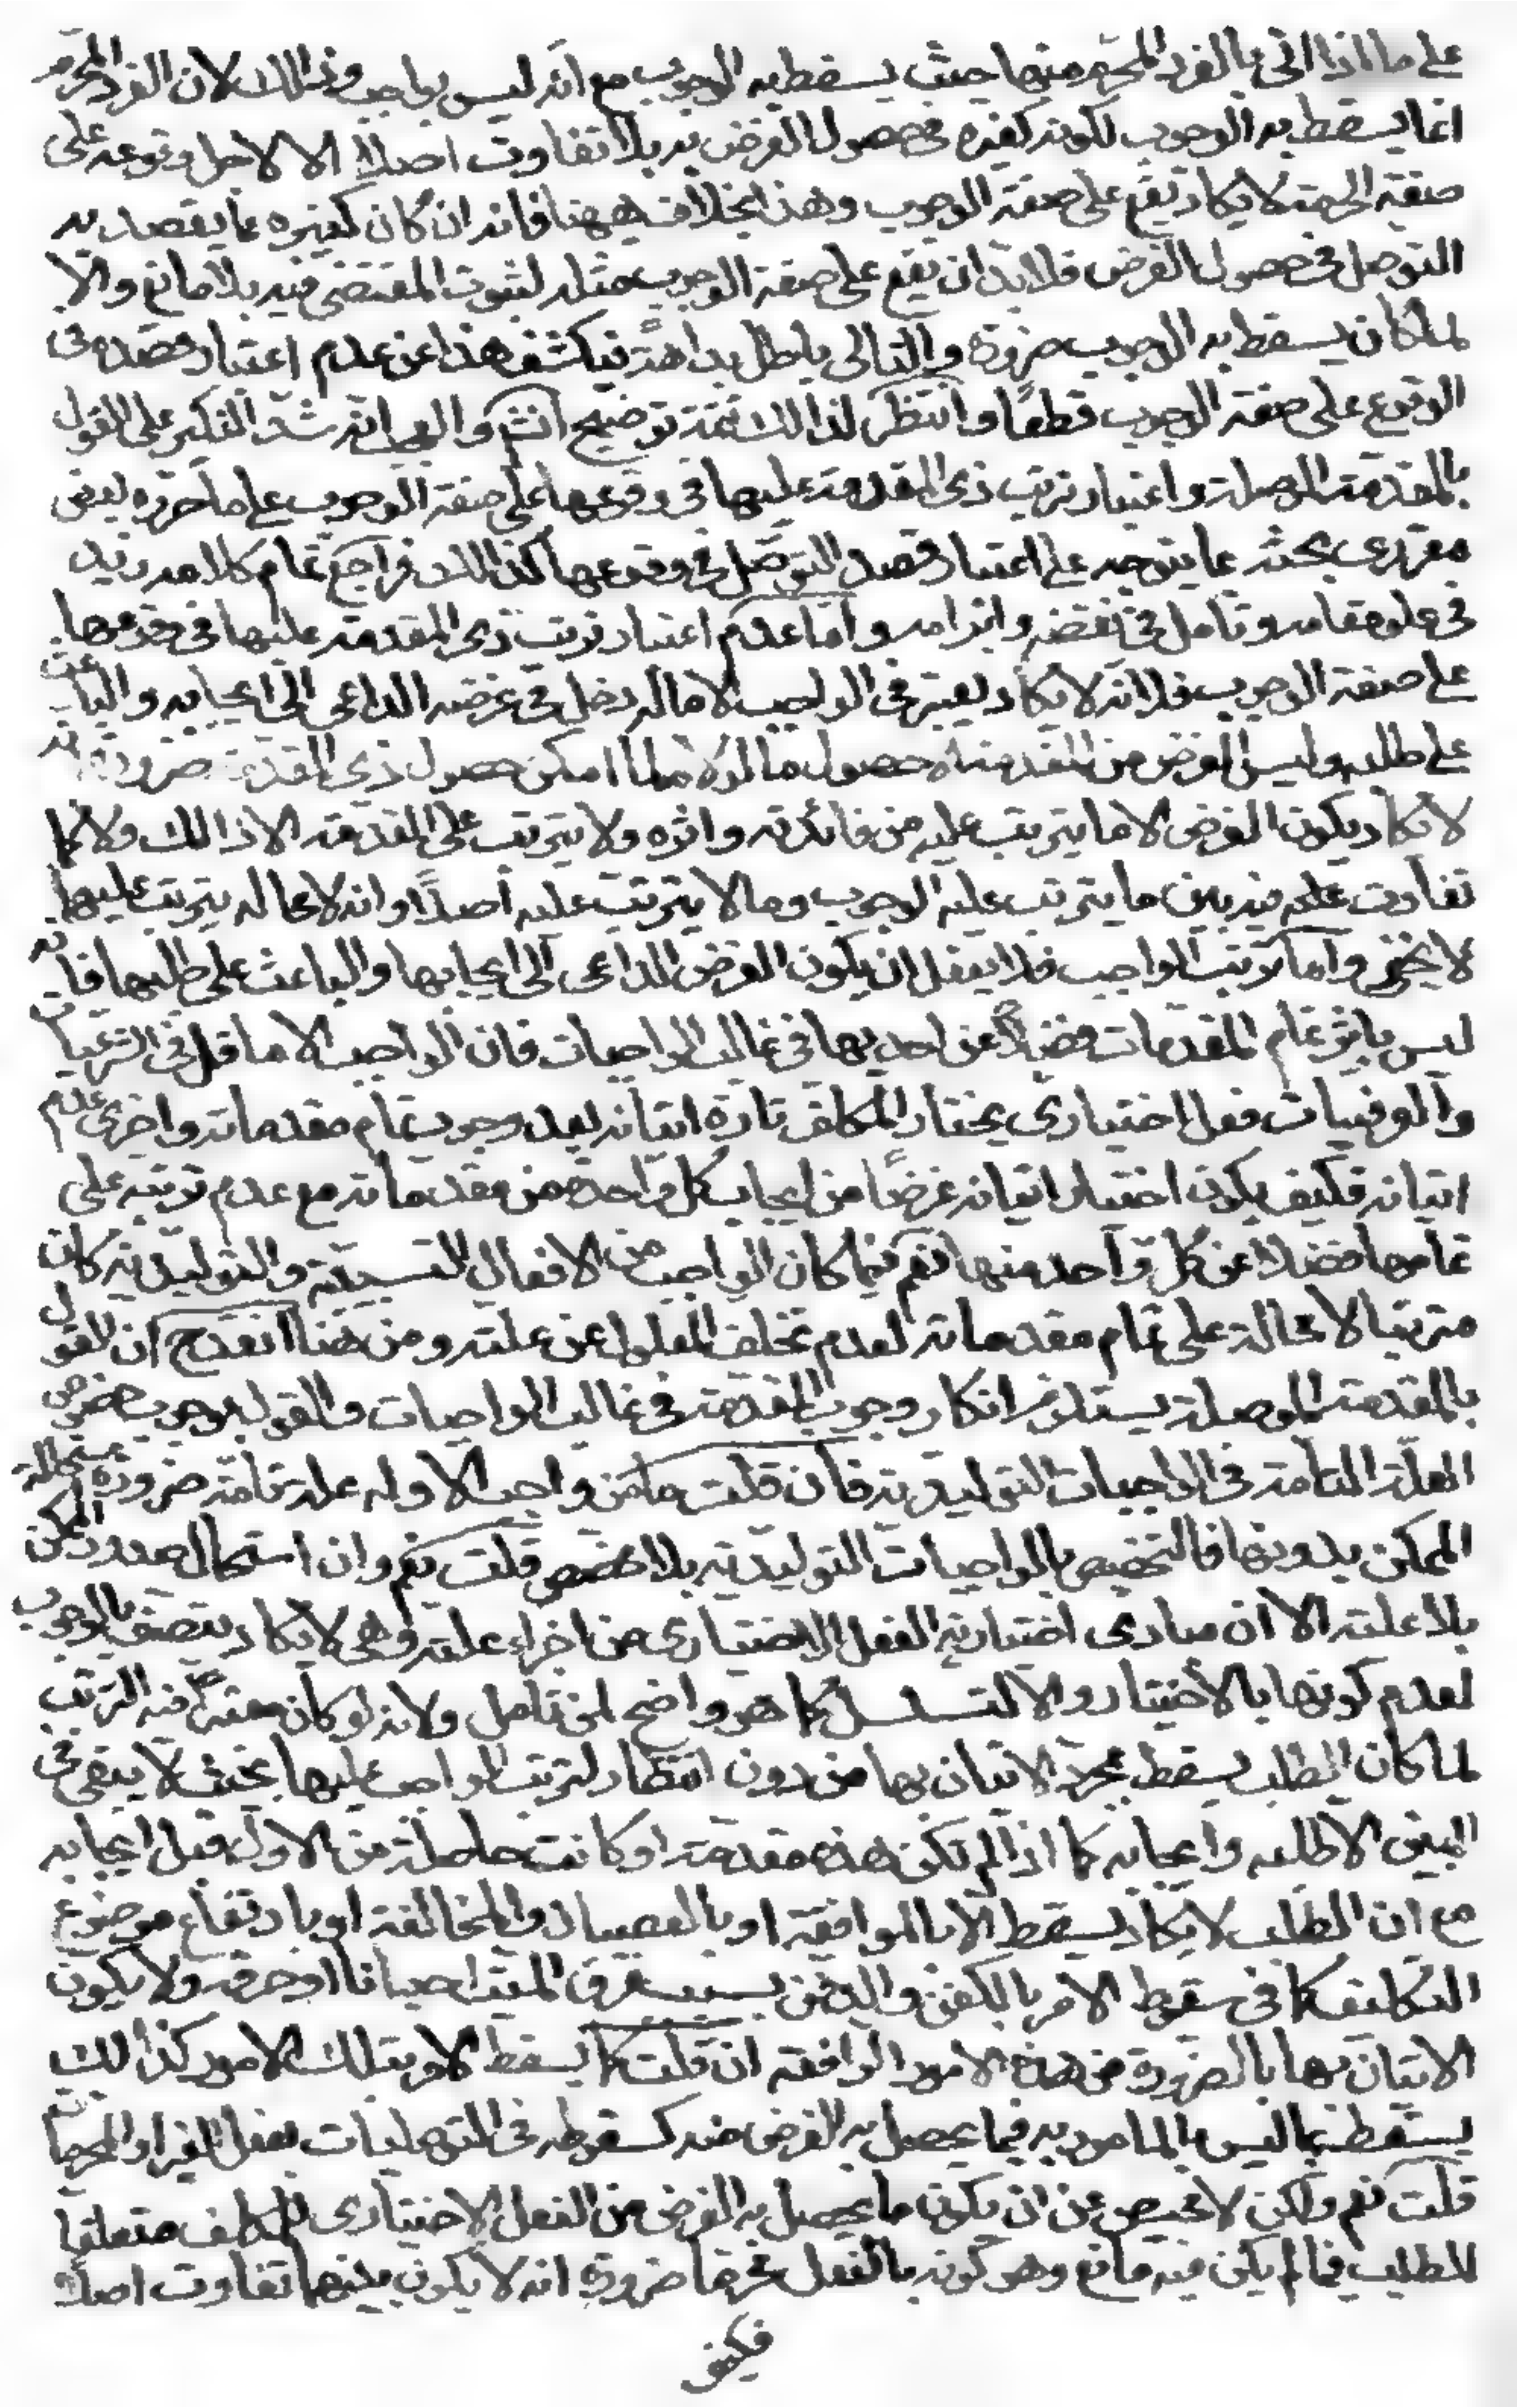 على ما اذا اتى بالفرد المحرم منها حيث يسقط به الوجوب مع انه ليس بواجب وذالك لان الفرد المحرم
انما يسقط به الوجوب لكونه كغيره فى حصول الغرض به بلا تفاوت اصلا الا لاجل وقوعه على
صفة الحرمة لا يكاد يقع على صفة الوجوب وهذا بخلاف هيهنا فانه ان كان كغيره مما يقصد به
التوصل فى حصول الغرض فلابد ان يقع على صفة الوجوب مثله لثبوت المقتضى فيه بلا مانع والا
لما كان يسقط به الوجوب ضرورة والتالى باطل بداهة فيكشف هذا عن عدم اعتبار قصده فى
الوقوع على صفة الوجوب قطعًا وانتظر لذالك تتمة توضيح انش والعجب انه شدد النكير على القول
بالمقدمة الموصلة واعتبار ترتب ذى المقدمة عليها فى وقوعها على صفة الوجوب على ما حرره بعض
مقررى بحثه بما يتوجه على اعتبار قصد التوصل فى وقوعها كذالك فراجع تمام كلامه زيد
فى علو مقامه وتامل فى نقضه وابرامه واما عدم اعتبار ترتب ذى المقدمة عليها فى وقوعها
على صفة الوجوب فلانه لا يكاد يعتبر فى الواجب الا ماله دخل فى غرضه الداعى الى ايجابه والباعث
على طلبه وليس الغرض من المقدمة الا حصول ما لولاه لما امكن حصول ذى المقدمة ضرورة انه
لا يكاد يكون الغرض الا ما يترتب عليه من فائدته واثره ولا يترتب على المقدمة الا ذالك ولا
تفاوت فيه بين ما يترتب عليه الواجب وما لا يترتب عليه اصلًا وانه لا محالة يترتب عليهما كما
لا يخفى واما ترتب الواجب فلا يعقل ان يكون الغرض الداعى الى ايجابها والباعث على طلبها فانه
ليس باثر تمام المقدمات فضلًا عن احديها فى غالب الواجبات فان الواجب الا ما قل فى الشرعيات
والعرفيات فعل اختيارى يختار المكلف تارة اتيانه بعد وجود تمام مقدماته واخرى عدم
اتيانه فكيف يكون اختيار اتيانه غرضًا من ايجاب كل واحدة من مقدماته مع عدم ترتبه على
تمامها فضلا عن كل واحد منها نعم فيما كان الواجب من الافعال التسبيبية والتوليدية كان
مترتبا لا محالة على تمام مقدماته لعدم تخلف المعلول عن علته ومن هنا انقدح ان القول
بالمقدمة الموصلة يستلزم انكار وجوب المقدمة فى غالب الواجبات والقول بوجوب خصوص
العلة التامة فى الواجبات التوليدية فان قلت ما من واجب الا وله علة تامة ضرورة استحالة
الممكن بدونها فالتخصيص بالواجبات التوليدية بلا مخصص قلت نعم وان استحال صدور الممكن
بلا علة الا ان مبادى اختيارية الفعل الاختيارى من اجزاء علته وهى لا يكاد يتصف بالوجوب
لعدم كونها بالاختيار والا لتسلسل كما هو واضح لمن تامل ولانه لو كان معتبرا فيه الترتب
لما كان الطلب يسقط بمجرد الاتيان بها من دون انتظار لترتب الواجب عليها بحيث لا يبقى فى
البين الا طلبه وايجابه كما اذا لم تكن هذه مقدمة او كانت حاصلة من الاول قبل ايجابه
مع ان الطلب لا يكاد يسقط الا بالموافقة او بالعصيان والمخالفة او بارتفاع موضوع
التكليف كما فى سقوط الامر بالكفن والدفن بسبب غرق الميت احيانا او حرقه ولا يكون
الاتيان بها بالضرورة من هذه الامور الا الموافقة ان قلت كما يسقط الامر بتلك الامور كذالك
يسقط بما ليس بالمامور به فيما يحصل به الغرض منه كسقوطه فى التوصليات بفعل الغير او المحرمات
قلت نعم ولكن لا محيص عن ان يكون ما يحصل به الغرض من الفعل الاختيارى للمكلف متعلقا
للطلب فيما لم يكن فيه مانع وهو كونه بالفعل محرما ضرورة انه لا يكون بينهما تفاوت اصلًا
فكيف